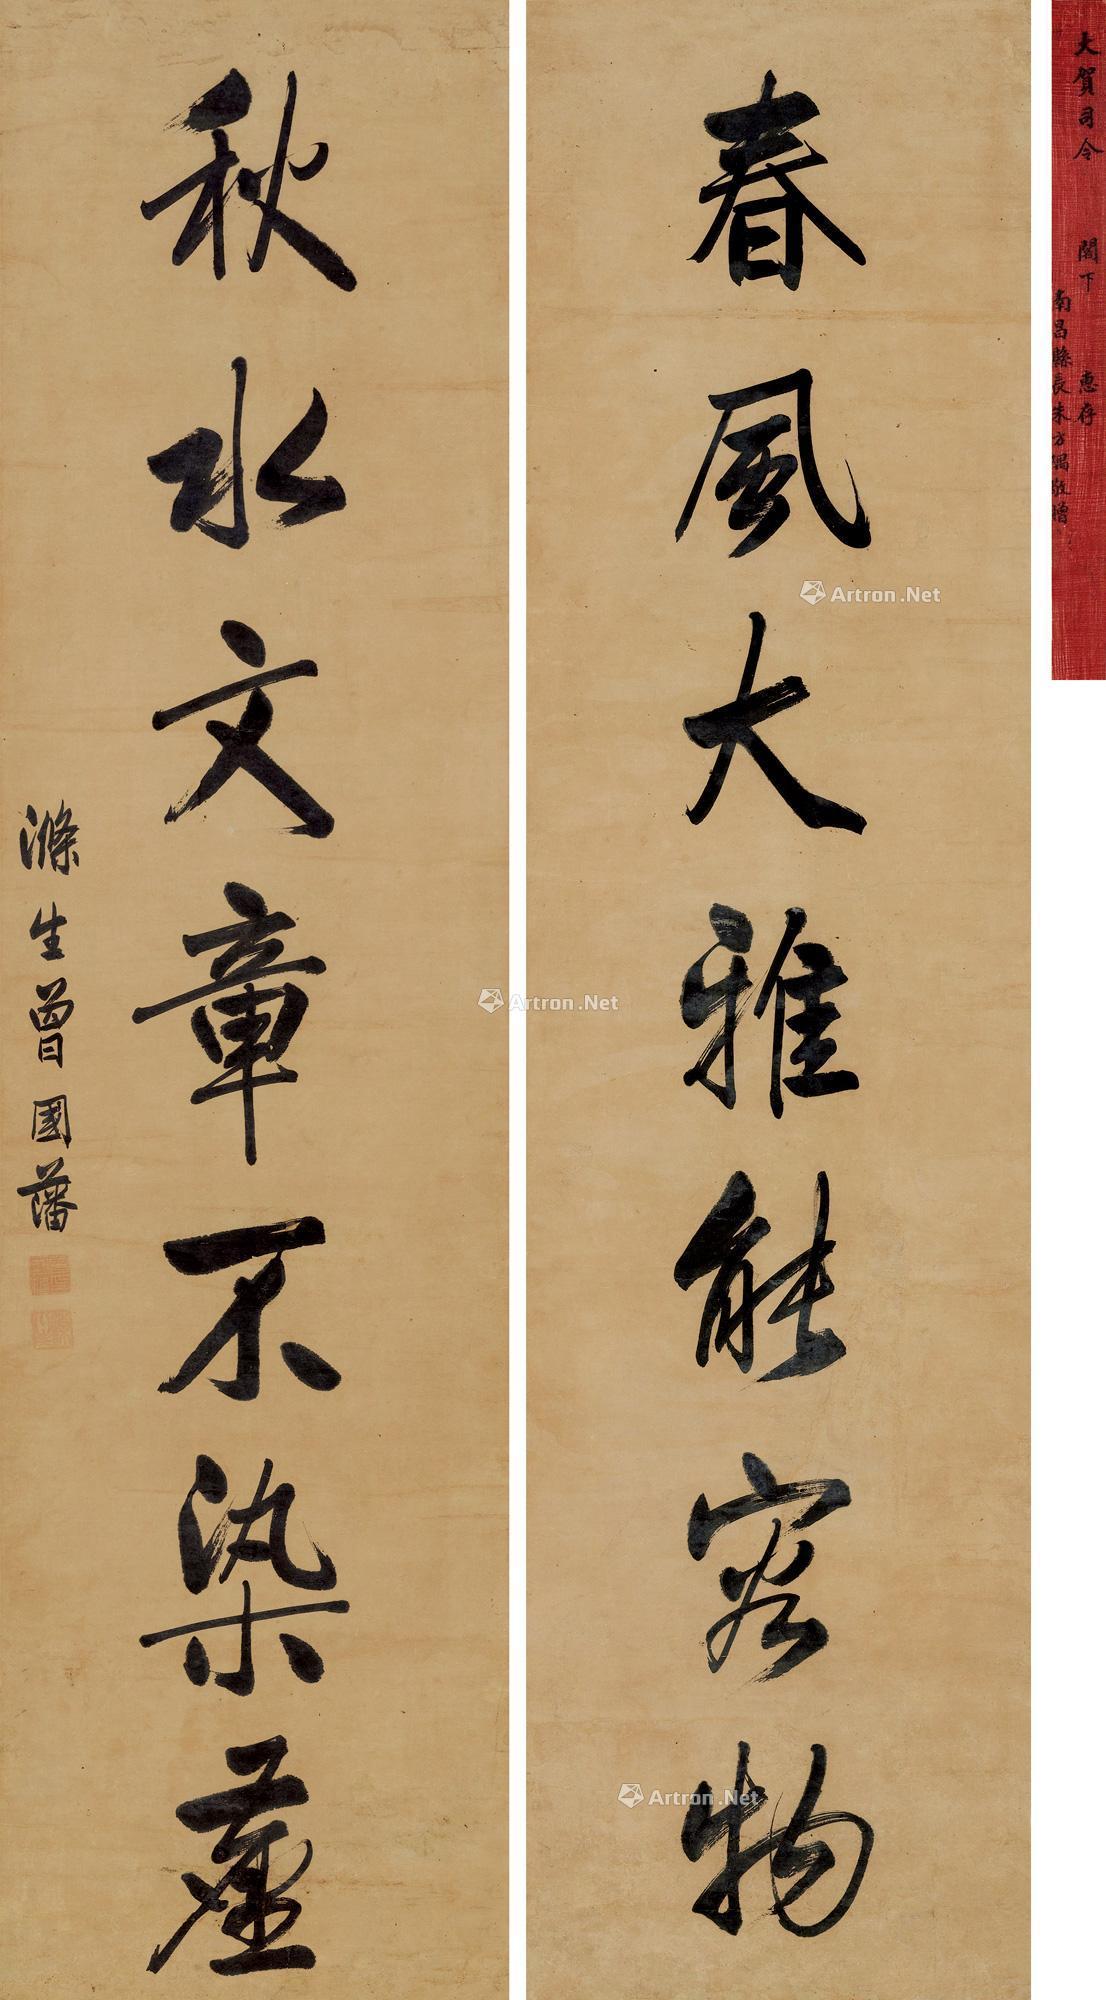 大賀司令 閣下 惠存
南昌縣長朱方隅敬贈
春風大雅能容物
秋水文章不染塵
滌生曾國藩
Artron.Net
Artron.Net
Artron.Net